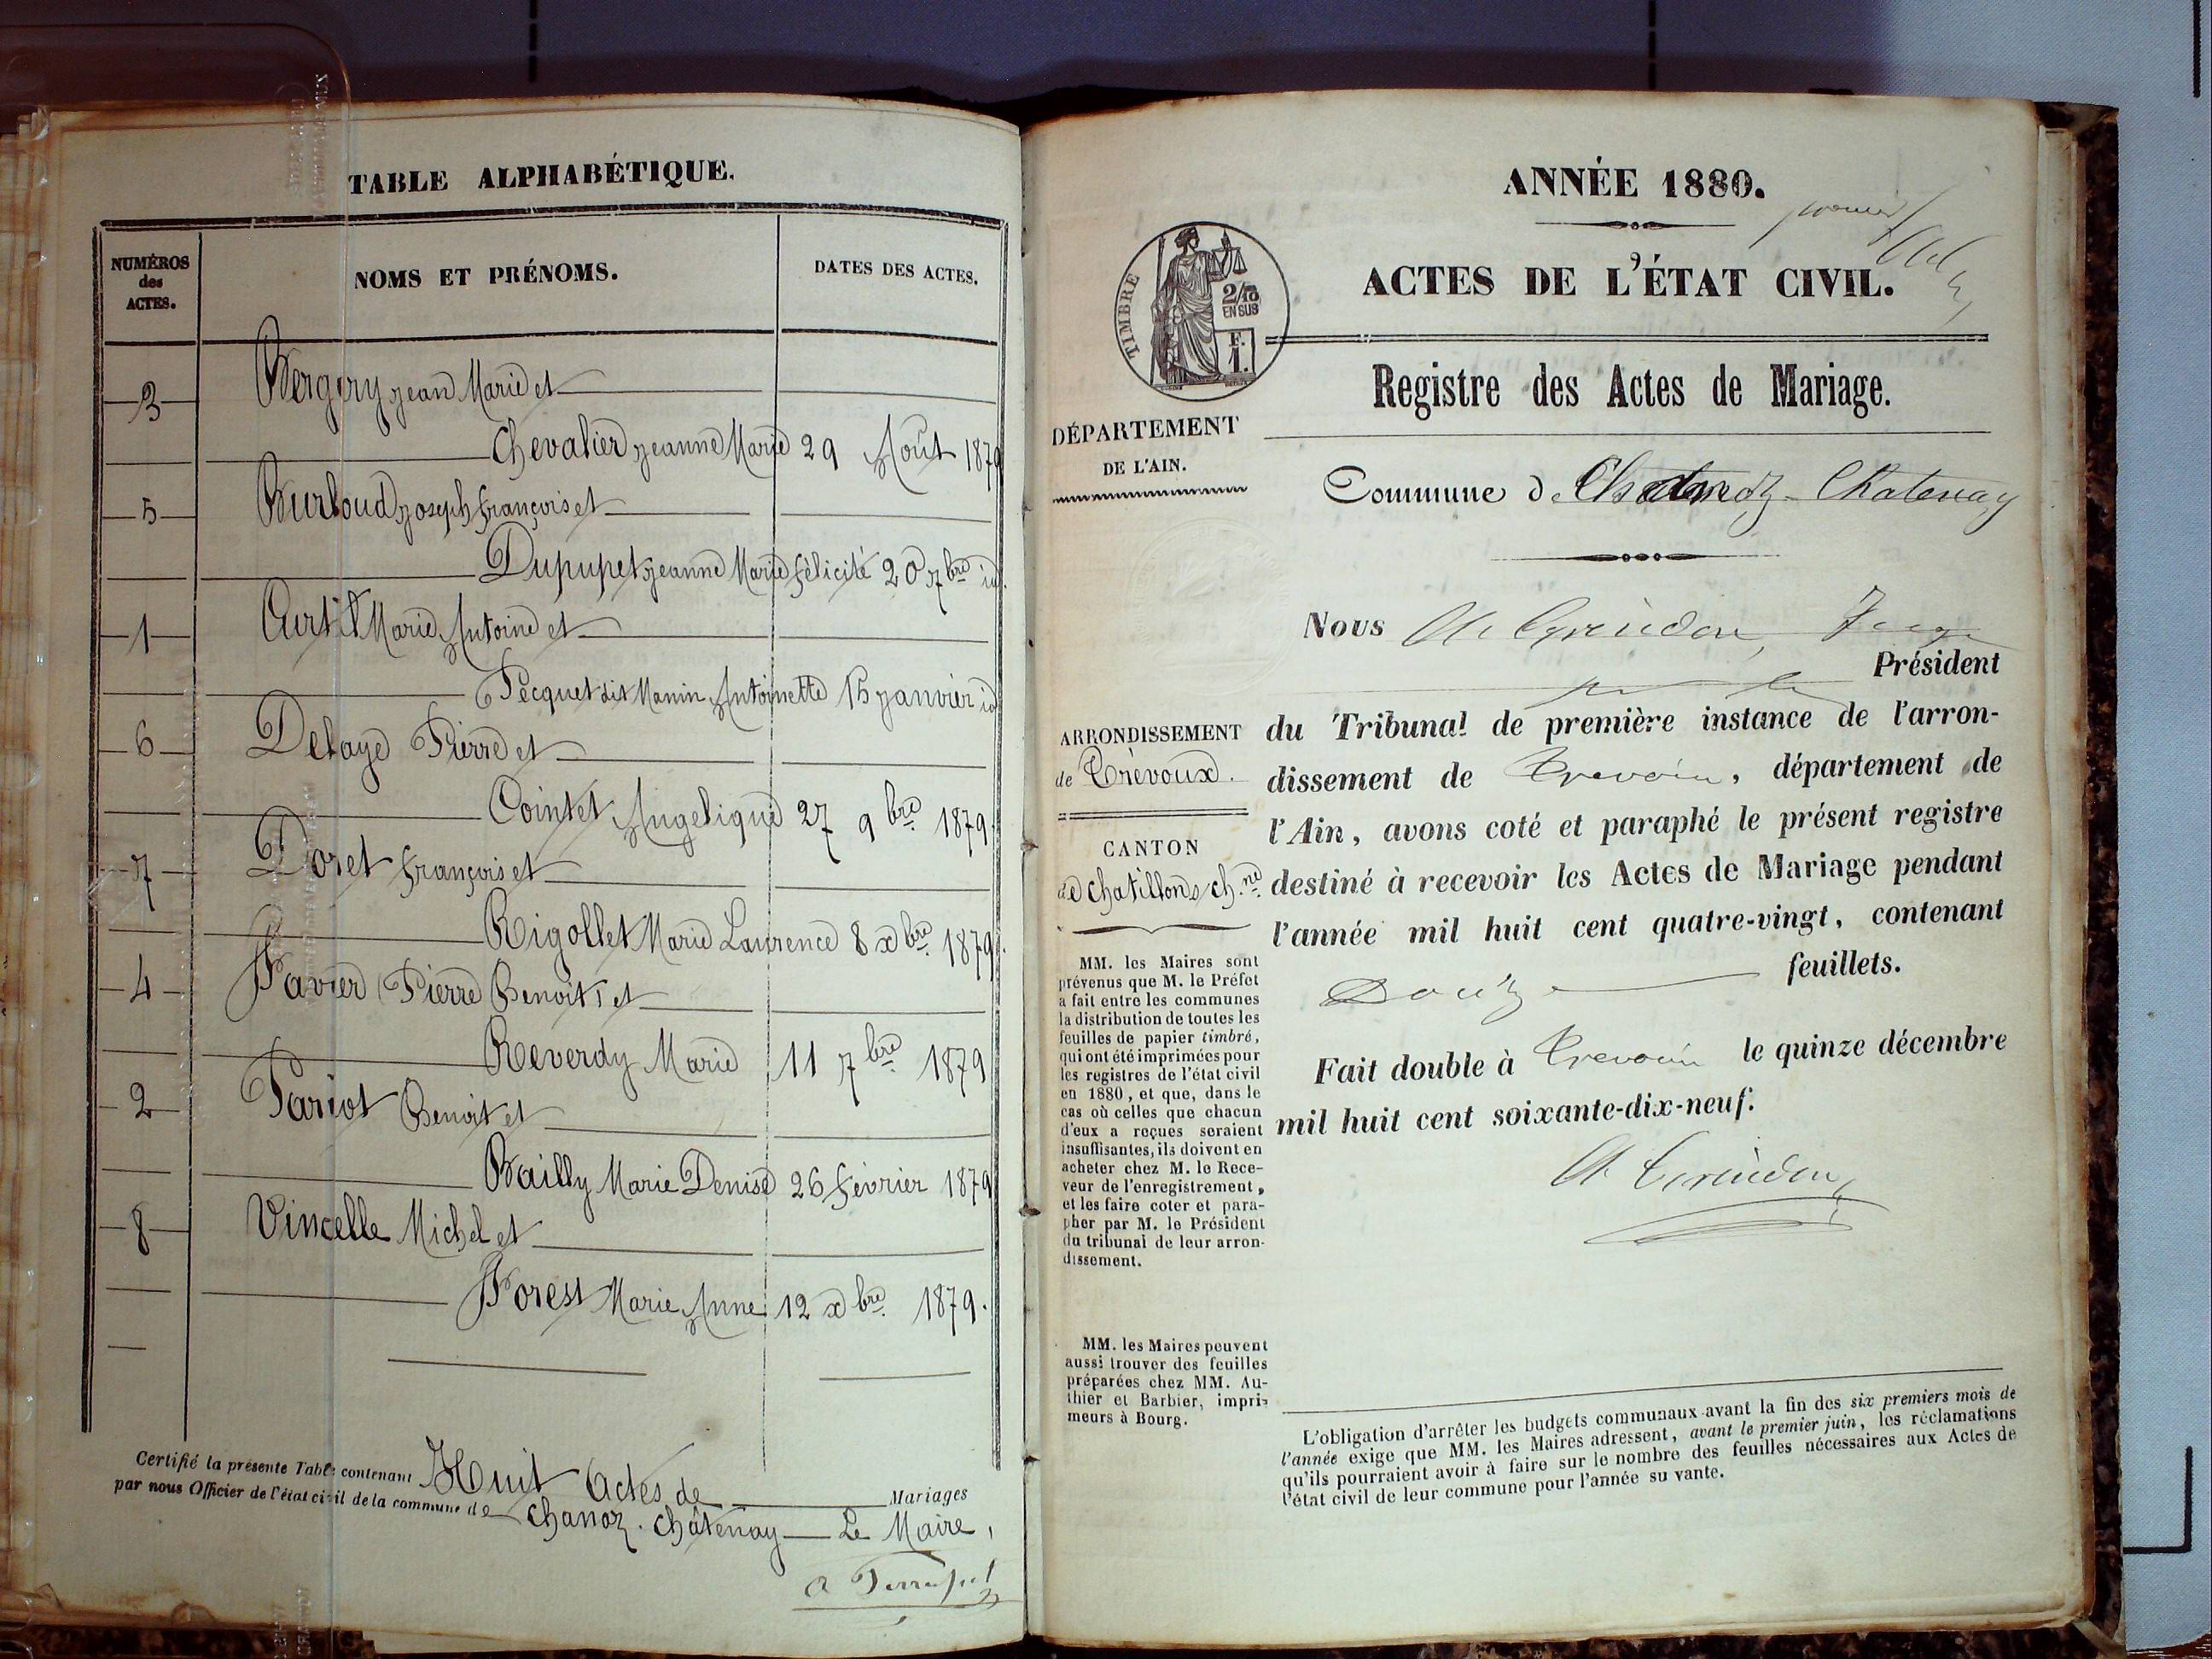 TABLE ALPHABÉTIQUE.
NUMÉROS
des
ACTES.
NOMS ET PRÉNOMS.
DATES DES ACTES.
3 Bergery Jean Marie et
Chevalier Jeanne Marie 29 Août 1879
5 Burloud Joseph François et
Dupupet Jeanne Marie félicité 20 7bre id.
1 Curt Marie Antoine et
Pecquet dit Manin Antoinette 15 Janvier id
6 Delaye Pierre et
Cointet Angelique 27 9bre 1879.
7 Doret François et
Rigollet Marie Laurence 8 xbre 1879.
4 Favier Pierre Benoit et
Reverdy Marie 11 7bre 1879
2 Pariot Benoit et
Bailly Marie Denise 26 février 1879
8 Vincelle Michel et
Forest Marie Anne 12 xbre 1879.
Certifié la présente Table contenant Huit Actes de Mariages
par nous Officier de l'état civil de la commune de Chanoz-Châtenay Le Maire,
ANNÉE 1880.
premier
ACTES DE L'ÉTAT CIVIL.
TIMBRE
2/10
EN SUS
F.
1.
Registre des Actes de Mariage.
DÉPARTEMENT
DE L'AIN.
Commune de Chanoz-Chatenay
Nous
Président
ARRONDISSEMENT
de Trévoux.
CANTON
de Chatillon s/ ch.ne
du Tribunal de première instance de l'arron-
dissement de Trevoux, département de
l'Ain, avons coté et paraphé le présent registre
destiné à recevoir les Actes de Mariage pendant
l'année mil huit cent quatre-vingt, contenant
Douze feuillets.
Fait double à Trevoux le quinze décembre
mil huit cent soixante-dix-neuf.
MM. les Maires sont
prévenus que M. le Préfet
a fait entre les communes
la distribution de toutes les
feuilles de papier timbré,
qui ont été imprimées pour
les registres de l'état civil
en 1880, et que, dans le
cas où celles que chacun
d'eux a reçues seraient
insuffisantes, ils doivent en
acheter chez M. le Rece-
veur de l'enregistrement,
et les faire coter et para-
pher par M. le Président
du tribunal de leur arron-
dissement.
MM. les Maires peuvent
aussi trouver des feuilles
préparées chez MM. Au-
thier et Barbier, impri-
meurs à Bourg.
L'obligation d'arrêter les budgets communaux avant la fin des six premiers mois de
l'année exige que MM. les Maires adressent, avant le premier juin, les réclamations
qu'ils pourraient avoir à faire sur le nombre des feuilles nécessaires aux Actes de
l'état civil de leur commune pour l'année su vante.